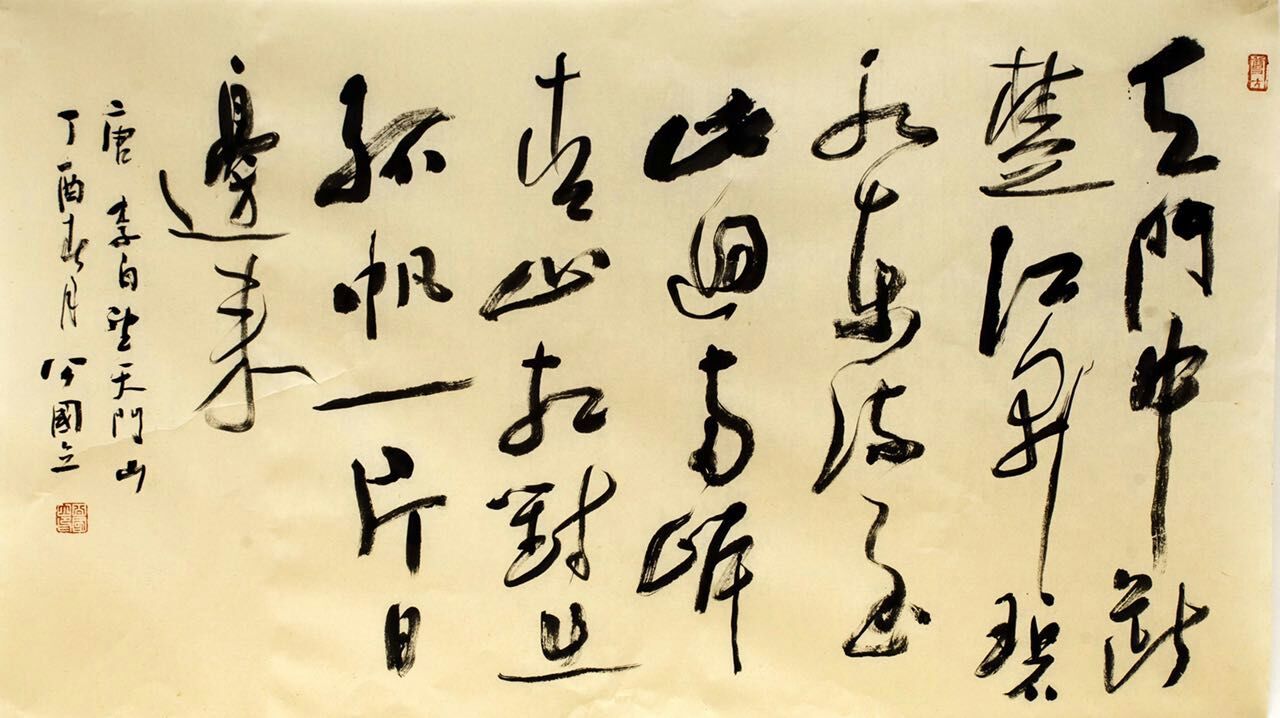 天門中斷
楚江開碧
水東流至
此迴兩岸
青山相對出
孤帆一片日
邊來
唐 李白望天門山
丁酉春月 國立